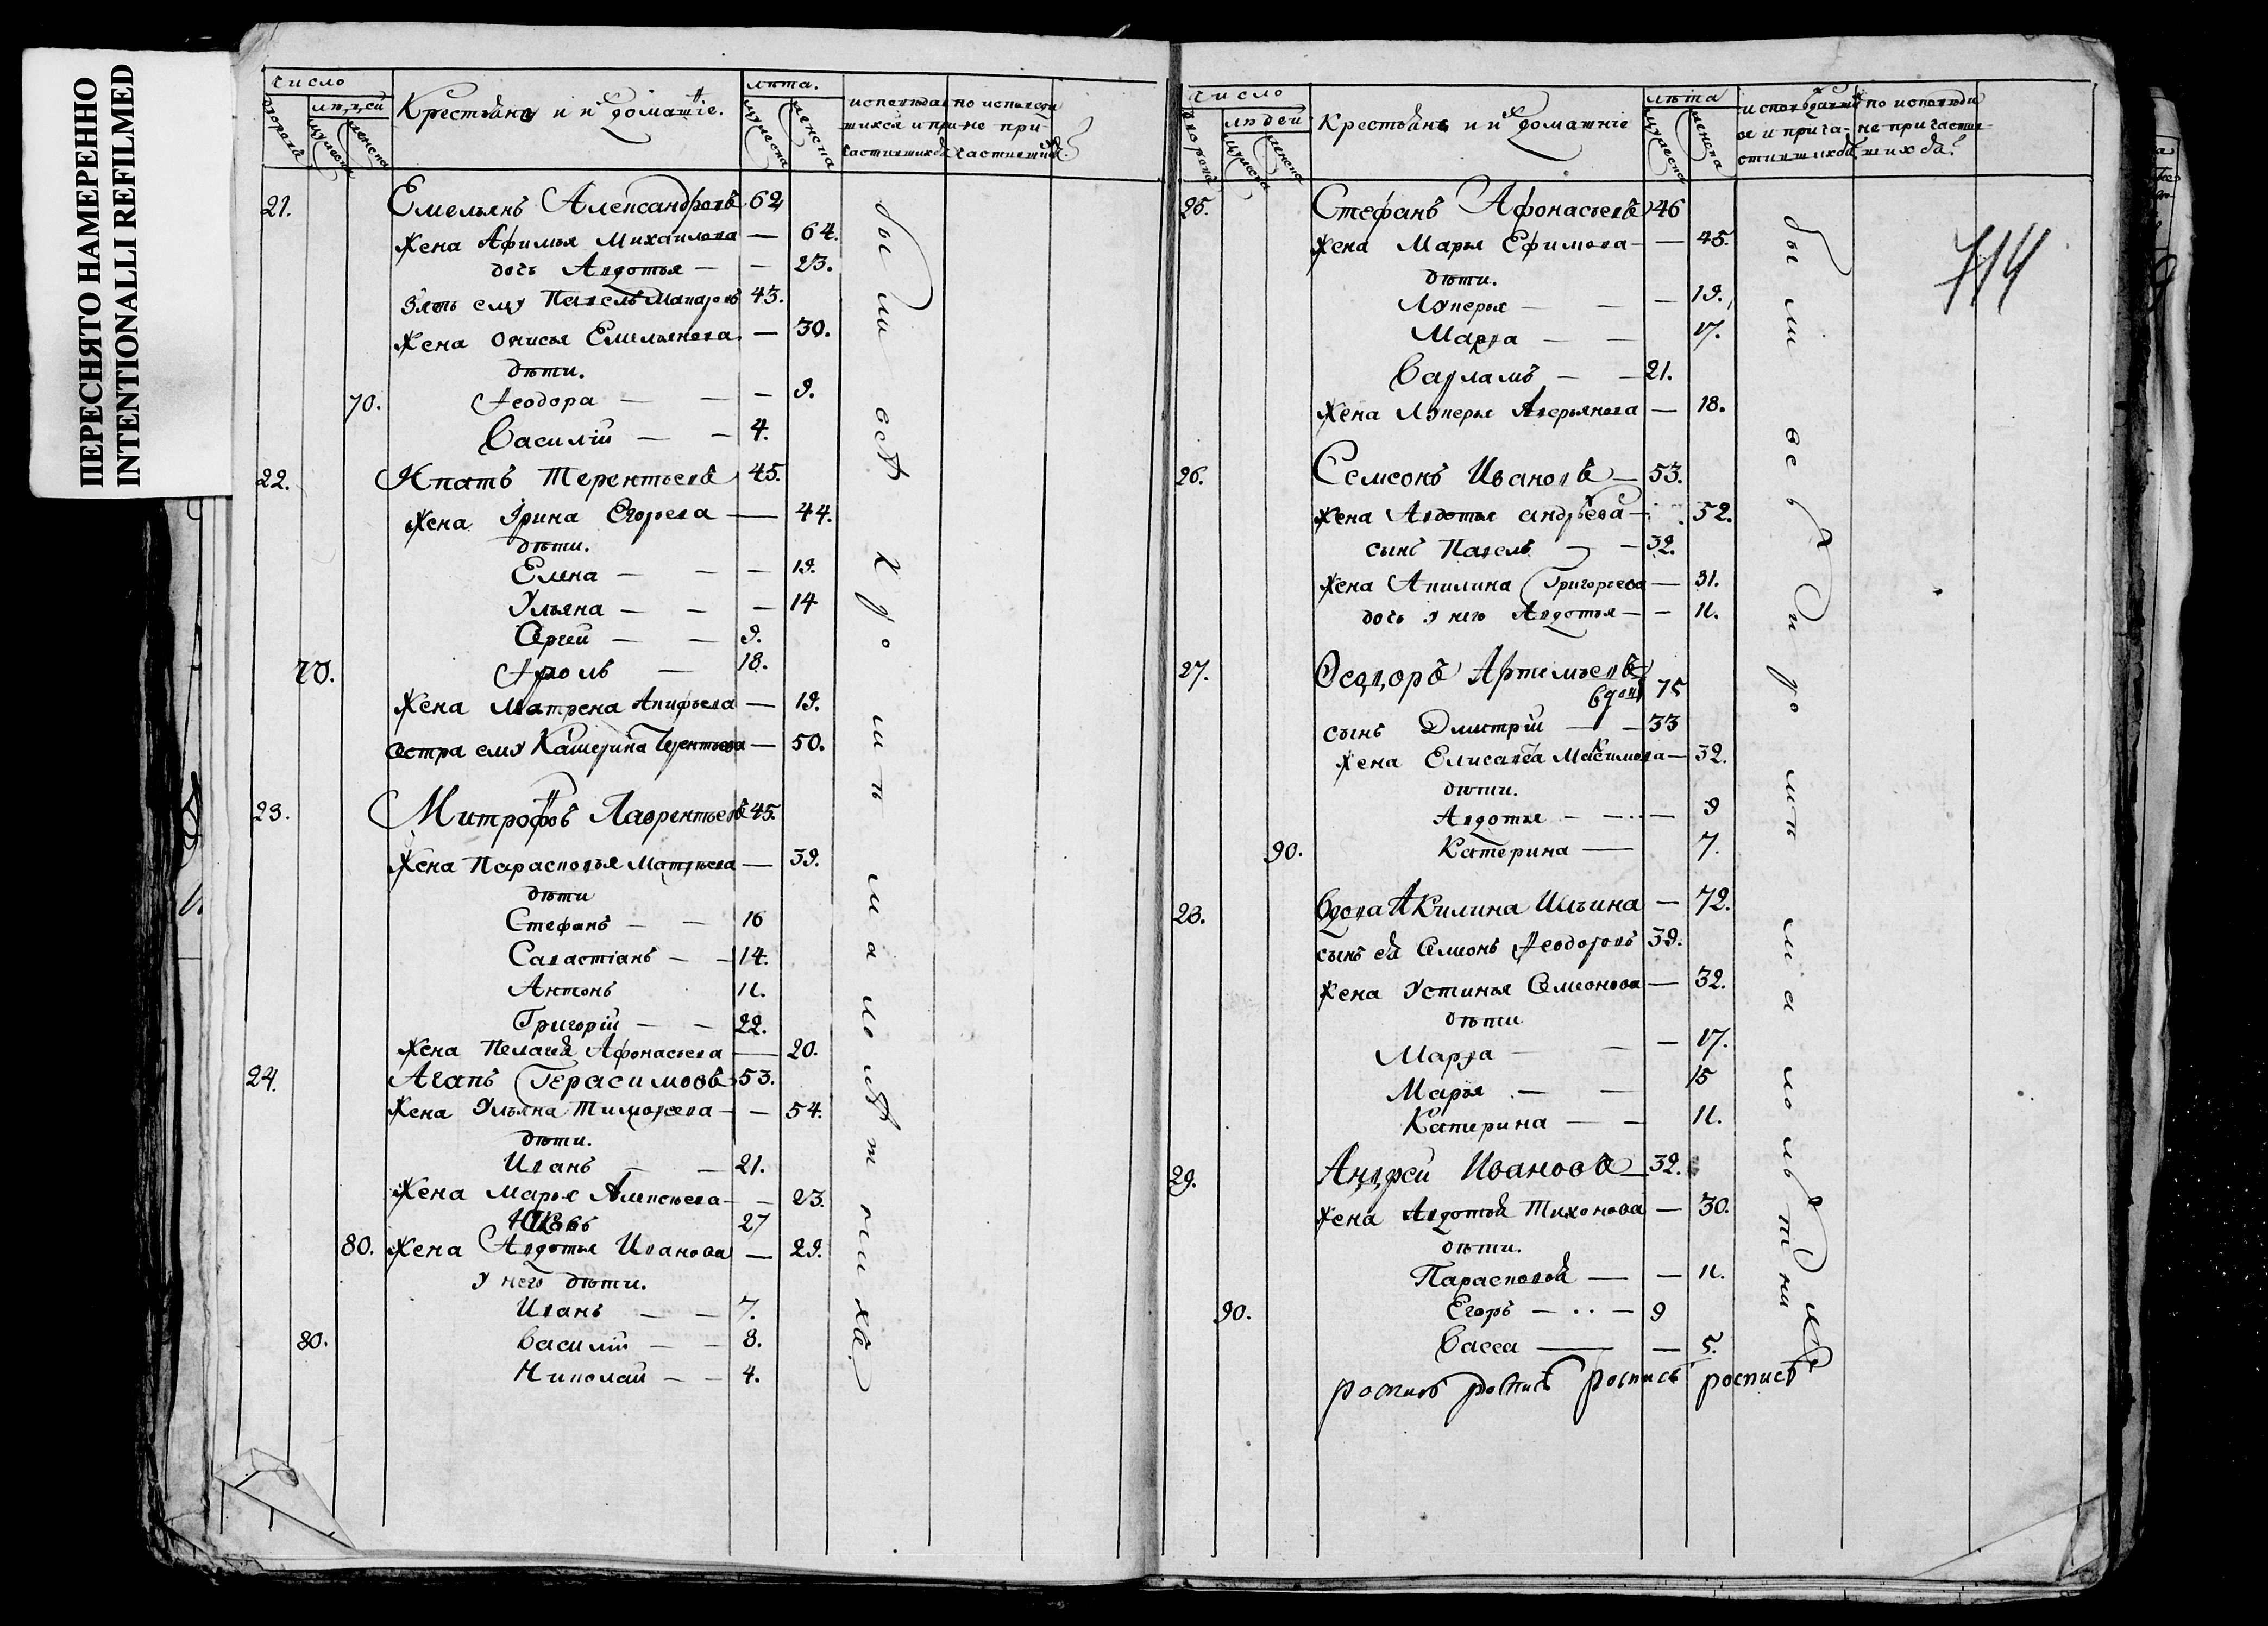 ПЕРЕСНЯТО НАМЕРЕННО
INTENTIONALLI REFILMED
число
людей
дворовъ
мужеска
женска
Крестьяне и ихъ домашніе.
лѣта.
мужеска
женска
исповѣдав
шихся и при
частившихся
по исповѣди
не при-
частившихся
21. Емельянъ Александровъ 62
Жена Афимья Михаилова — 64.
дочь Авдотья — — 23.
Зять ему Павелъ Макаровъ 43.
Жена Онисья Емельянова — 30.
дѣти.
70. Ѳеодора — — — 9.
Василій — — 4.
22. Ипатъ Терентьевъ 45.
Жена Ірина Егорева — 44.
дѣти.
Елена — — — 19.
Ульяна — — — 14
Сергѣй — — 9.
70. Фролъ — 18.
Жена Матрена Апифьева — 19.
Сестра ему Катерина Терентьева — 50.
23. Митрофонъ Лаврентьевъ 45.
Жена Парасковья Матвѣева — 39.
дѣти
Стефанъ — — 16
Савастіанъ — — 14.
Антонъ 11.
Григорій — — 22.
Жена Пелагея Афонасьева — 20.
24. Агапъ Герасимовъ 53.
Жена Ульяна Тимоѳеева — — 54.
дѣти.
Иванъ — — 21.
Жена Марья Алексѣева — — 23.
27
80. Жена Авдотья Иванова — 29.
У него дѣти.
Иванъ — — 7.
80. Василій — — 8.
Николай — — 4.
были всѣ х у о ш п м а л о л ѣ т н и хъ.
число
людей
дворовъ
мужеска
женска
Крестьянъ и ихъ домашніе
лѣта
мужеска
женска
исповѣдавших
ся и прича-
стившихся
по исповѣди
не причастив
шихся.
714
25. Стефанъ Афонасьевъ 46
Жена Марья Ефимова — — 45.
дѣти.
Лукерья — — — 19.
Марѳа — — 17.
Варламъ — — 21.
Жена Лукерья Аверьянова — 18.
26. Семсонъ Ивановъ — 53.
Жена Авдотья Андрѣева — 52.
сынъ Павелъ — — 32.
Жена Акилина Григорьева — 31.
дочь у него Авдотья — — 11.
27. Ѳеодоръ Артемьевъ
вдовъ 75
сынъ Дмитрій — — 33
Жена Елисавета Максимова — 32.
дѣти.
Авдотья — — — 9
90. Катерина — 7.
28. Вдова Акилина Ильина — 72.
сынъ ея Семионъ Ѳеодоровъ 39.
Жена Устинья Семионова — 32.
дѣти
Марѳа — — — 17.
Марья — — 15
Катерина — — 11.
29. Андрей Ивановъ — 32.
Жена Авдотья Тихонова — 30.
дѣти.
Парасковья — — 11.
90. Егоръ — — 9
Васса — — 5.
роспись роспись роспись роспись